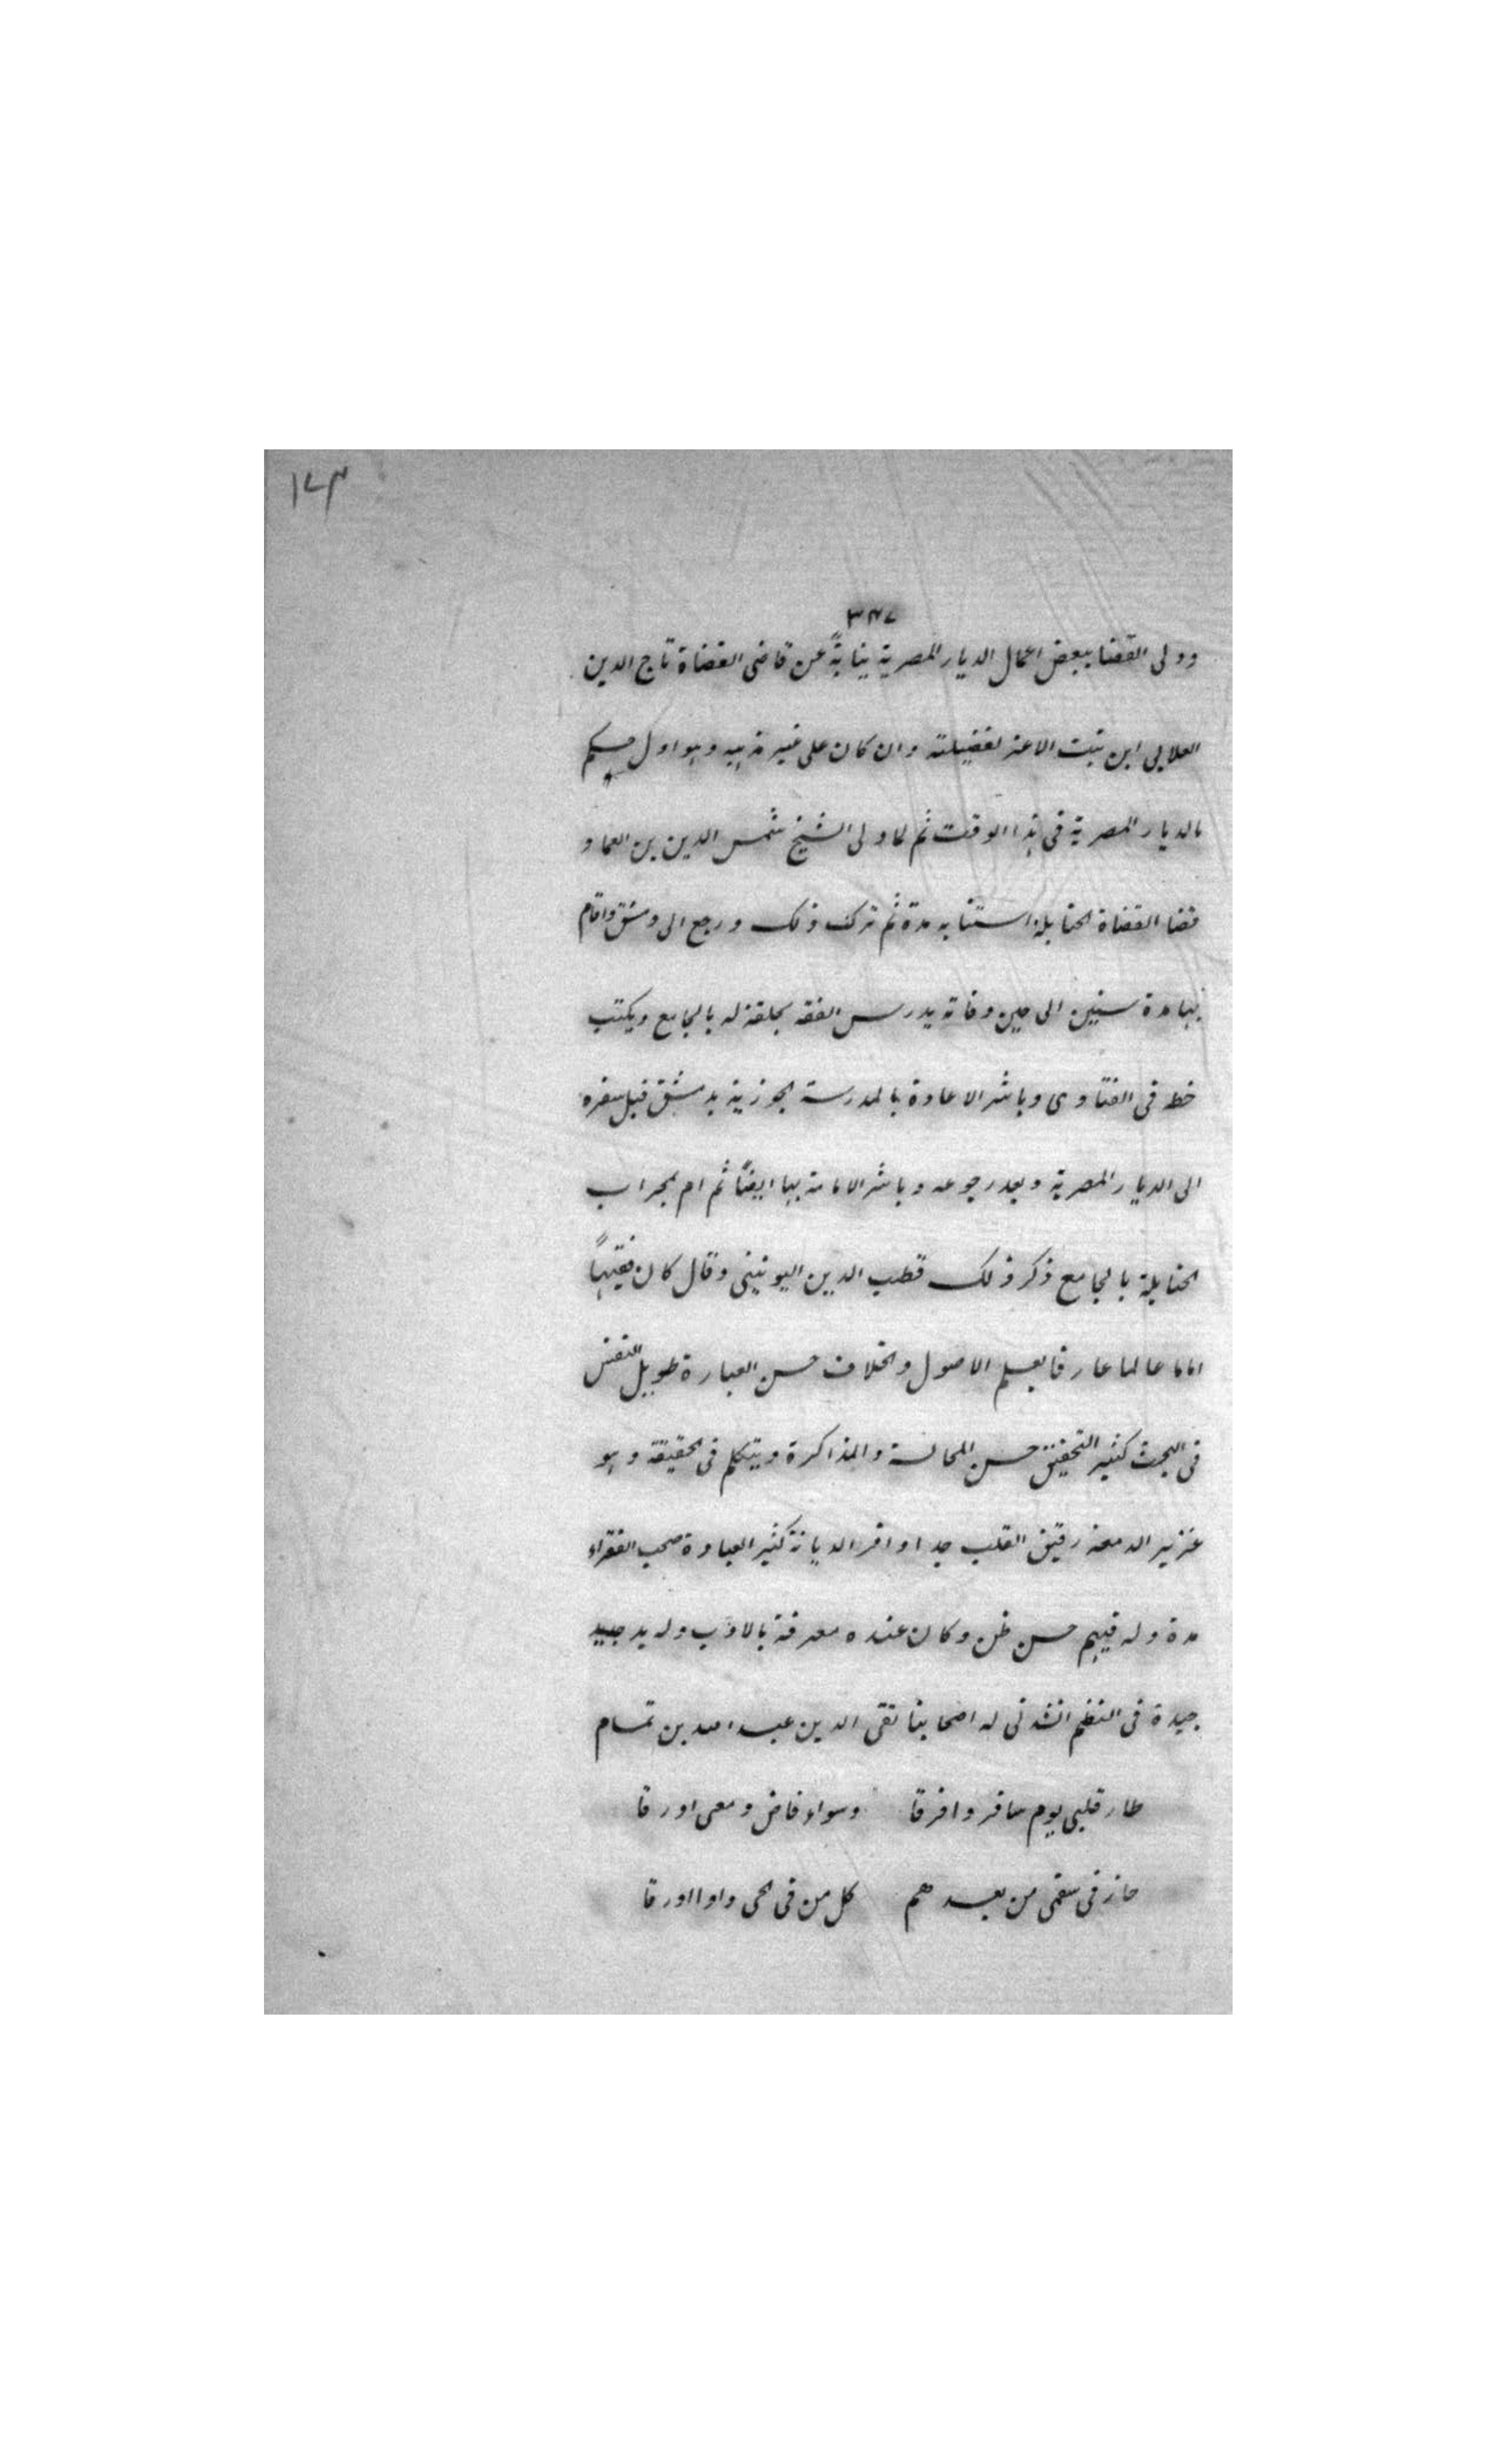 ١٧٣
٣٤٧
وولى القضا ببعض اعمال الديار المصرية نيابةً عن قاضى القضاة تاج الدين
العلايى ابن بنت الاعز لفضيلته وان كان على غير مذهبه وهو اول حكم
بالديار المصرية فى هذا الوقت ثم لما ولى الشيخ شمس الدين بن العماد
قضا القضاة الحنابلة استنابه مدة ثم ترك ذلك ورجع الى دمشق واقام
بها مدة سنين الى حين وفاته يدرس الفقه بحلقة له بالجامع ويكتب
خط فى الفتاوى وباشر الاعادة بالمدرسة الجوزية بدمشق قبل سفره
الى الديار المصرية وبعد رجوعه وباشر الامامة بها ايضًا ثم ام بمحراب
الحنابلة بالجامع ذكر ذلك قطب الدين اليونينى وقال كان فقيهًا
اماما عالما عارفا بعلم الاصول والخلاف حسن العبارة طويل النفس
فى البحث كثير التحقيق حسن المجالسة والمذاكرة ويتكلم فى الحقيقة وهو
غزير الدمعة رقيق القلب جدا وافر الديانة كثير العبادة صحب الفقراء
مدة وله فيهم حسن ظن وكان عنده معرفة بالادب وله يد جيد
جيدة فى النظم انشدنى له اصحابنا تقى الدين عبد الله بن تمام
طار قلبى يوم سافروا فرقا وسواء فاض دمعى او رقا
حار فى سقمى من بعدهم كل من فى الحى داوا او رقا